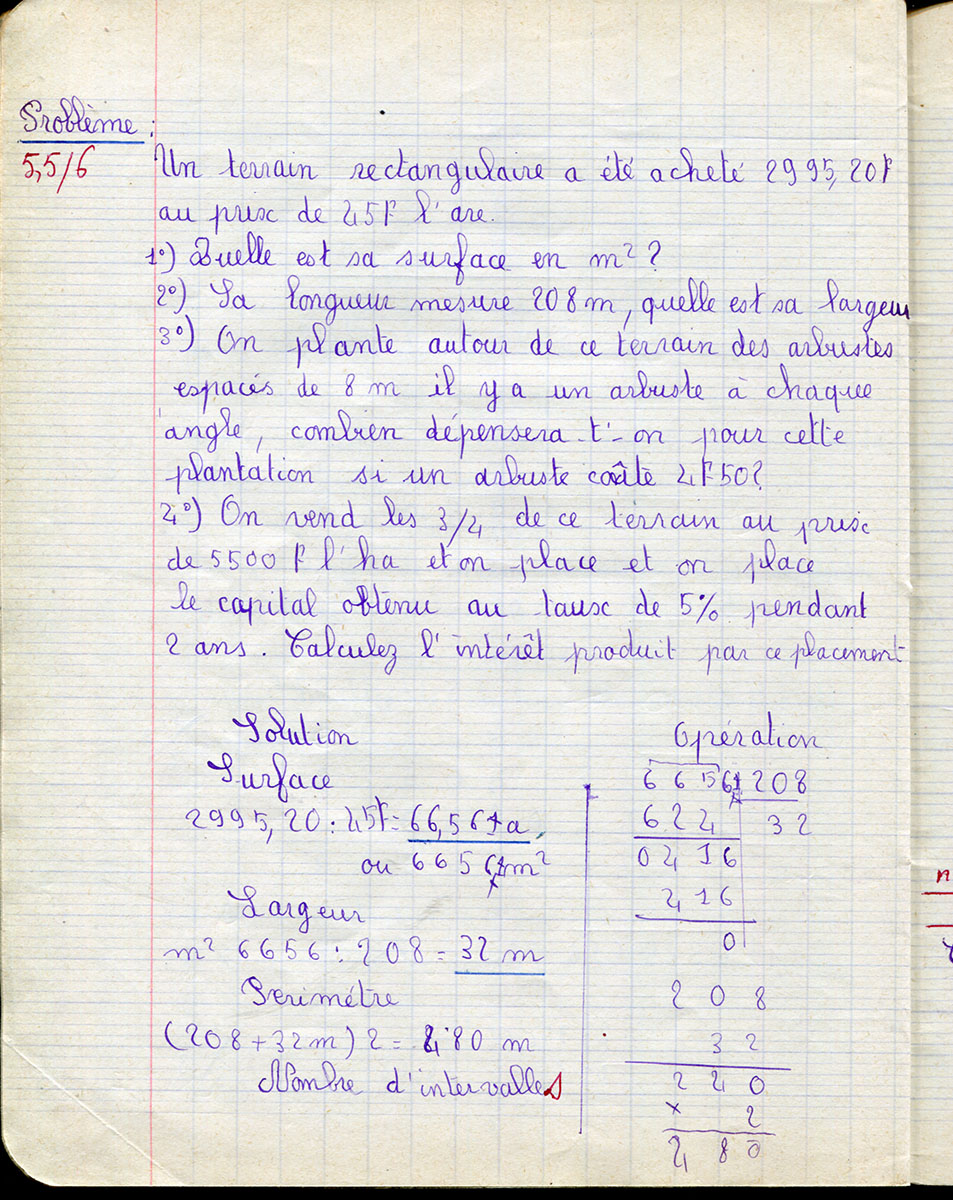 Problème :
5,5/6
Un terrain rectangulaire a été acheté 2995,20F
au prix de 45F l'are.
1°) Quelle est sa surface en m² ?
2°) Sa longueur mesure 208 m, quelle est sa largeur
3°) On plante autour de ce terrain des arbustes
espacés de 8 m il y a un arbuste à chaque
angle, combien dépensera-t'-on pour cette
plantation si un arbuste coûte 4F50?
4°) On vend les 3/4 de ce terrain au prix
de 5500 F l'ha et on place et on place
le capital obtenu au taux de 5% pendant
2 ans. Calculez l'intérêt produit par ce placement
Solution
Surface
2995,20 : 45F = 66,56 a
ou 6656 m²
Largeur
m² 6656 : 208 = 32 m
Perimétre
(208 + 32m) 2 = 480 m
Nombre d'intervalles
Opération
6656 208
624 32
0416
416
0
208
32
240
× 2
480
n